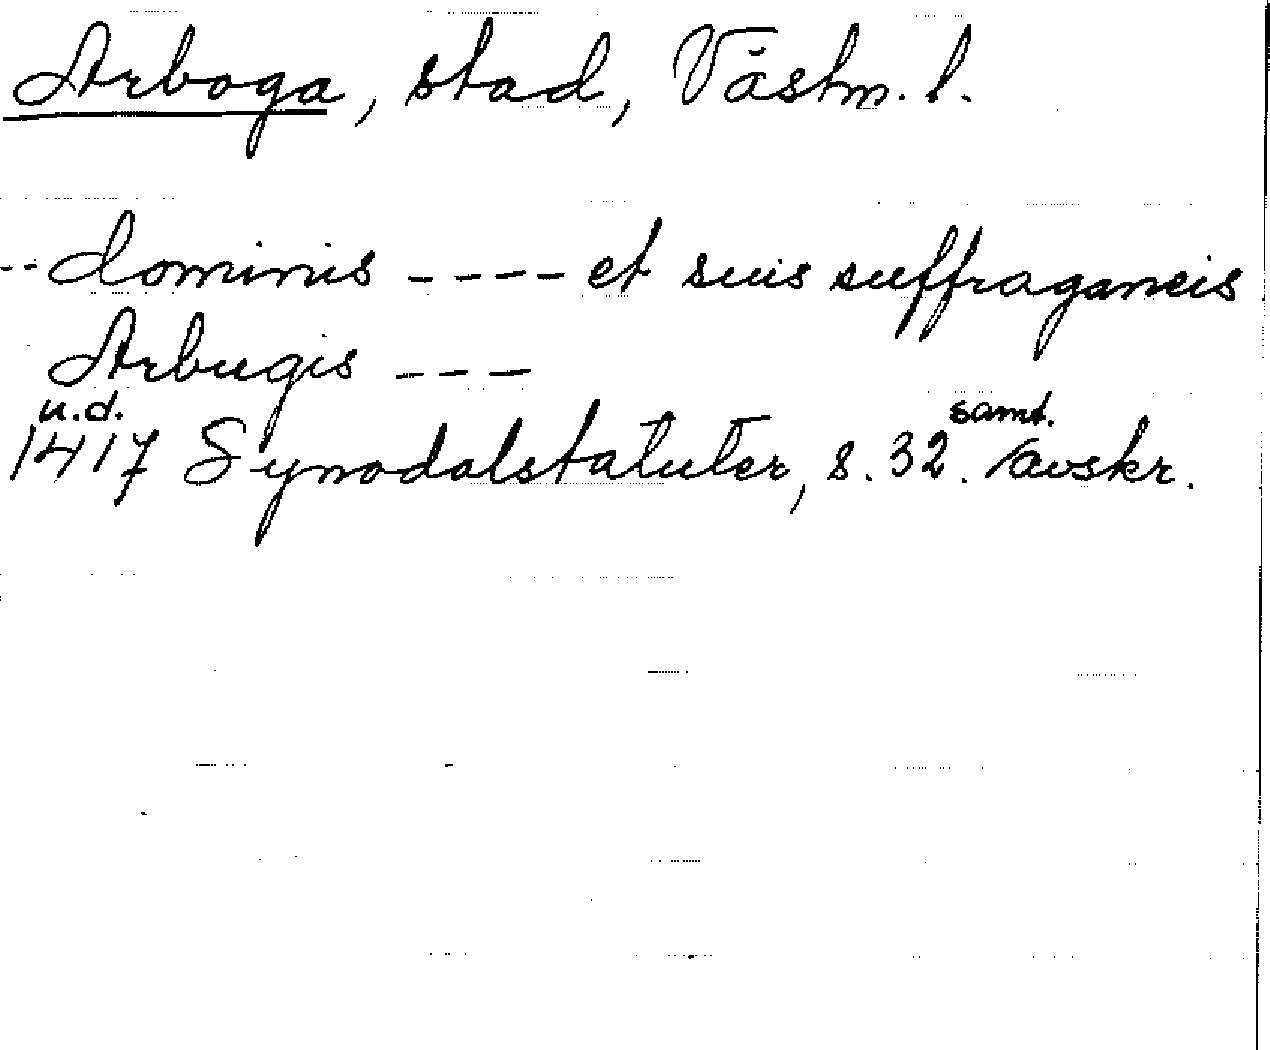 Arboga, stad, Västm. l.
-- dominis ---- et suis suffraganeis
Arbugis ---
u.d. samt.
1417 Synodalstatuter, s. 32. /avskr.